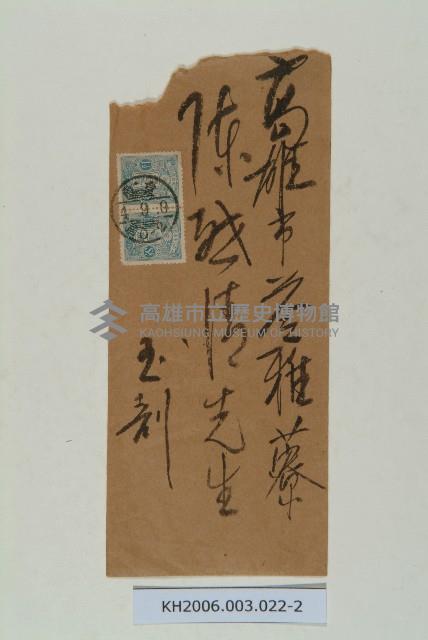 高雄市苓雅寮
陳啟清先生
玉剖
高雄市立歷史博物館
KAOHSIUNG MUSEUM OF HISTORY
KH2006.003.022-2